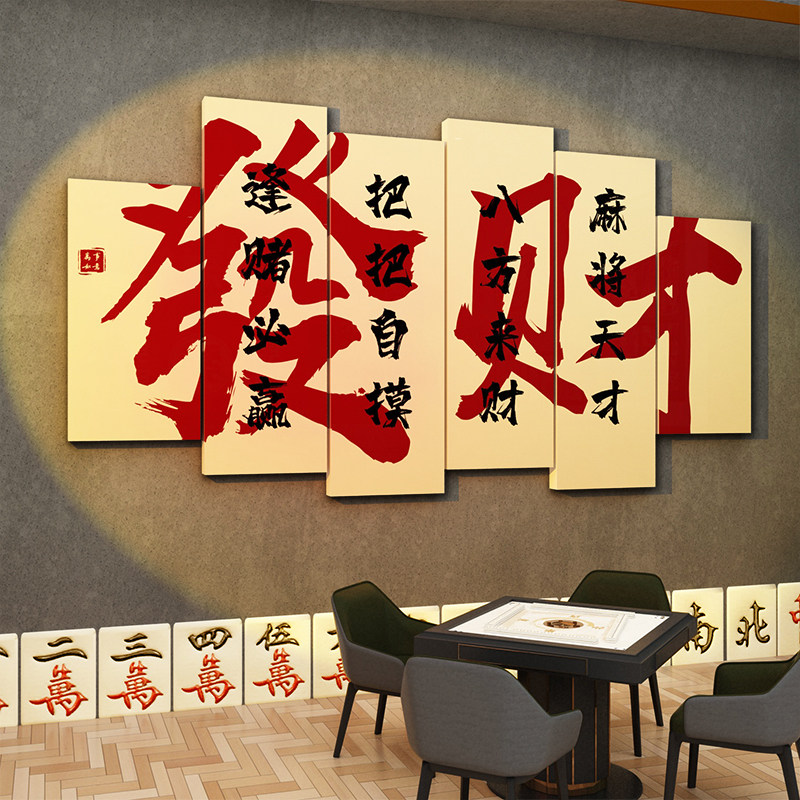 發财
麻将天才
八方来财
把把自摸
逢赌必赢
萬事如意
二萬
三萬
四萬
伍萬
南
北